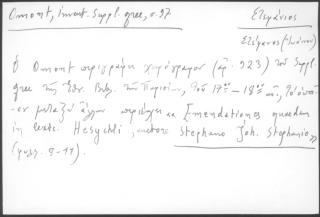 Omont, invent. Suppl. grec, σ. 97
Στέφανος
Στέφανος (Ἰωάννου)
Ὁ Omont περιγράφει χειρόγραφον (ἀρ. 923) τοῦ Suppl.
grec τῆς Ἐθν. Βιβλ. τῶν Παρισίων, τοῦ 17ου – 18ου αἰ., τὸ ὁποῖ-
ον μεταξὺ ἄλλων περιέχει κα Emendationes quaedam
in textu Hesychii, auctore Stephano Joh. Stephanio»
(φυλλ. 9-11).